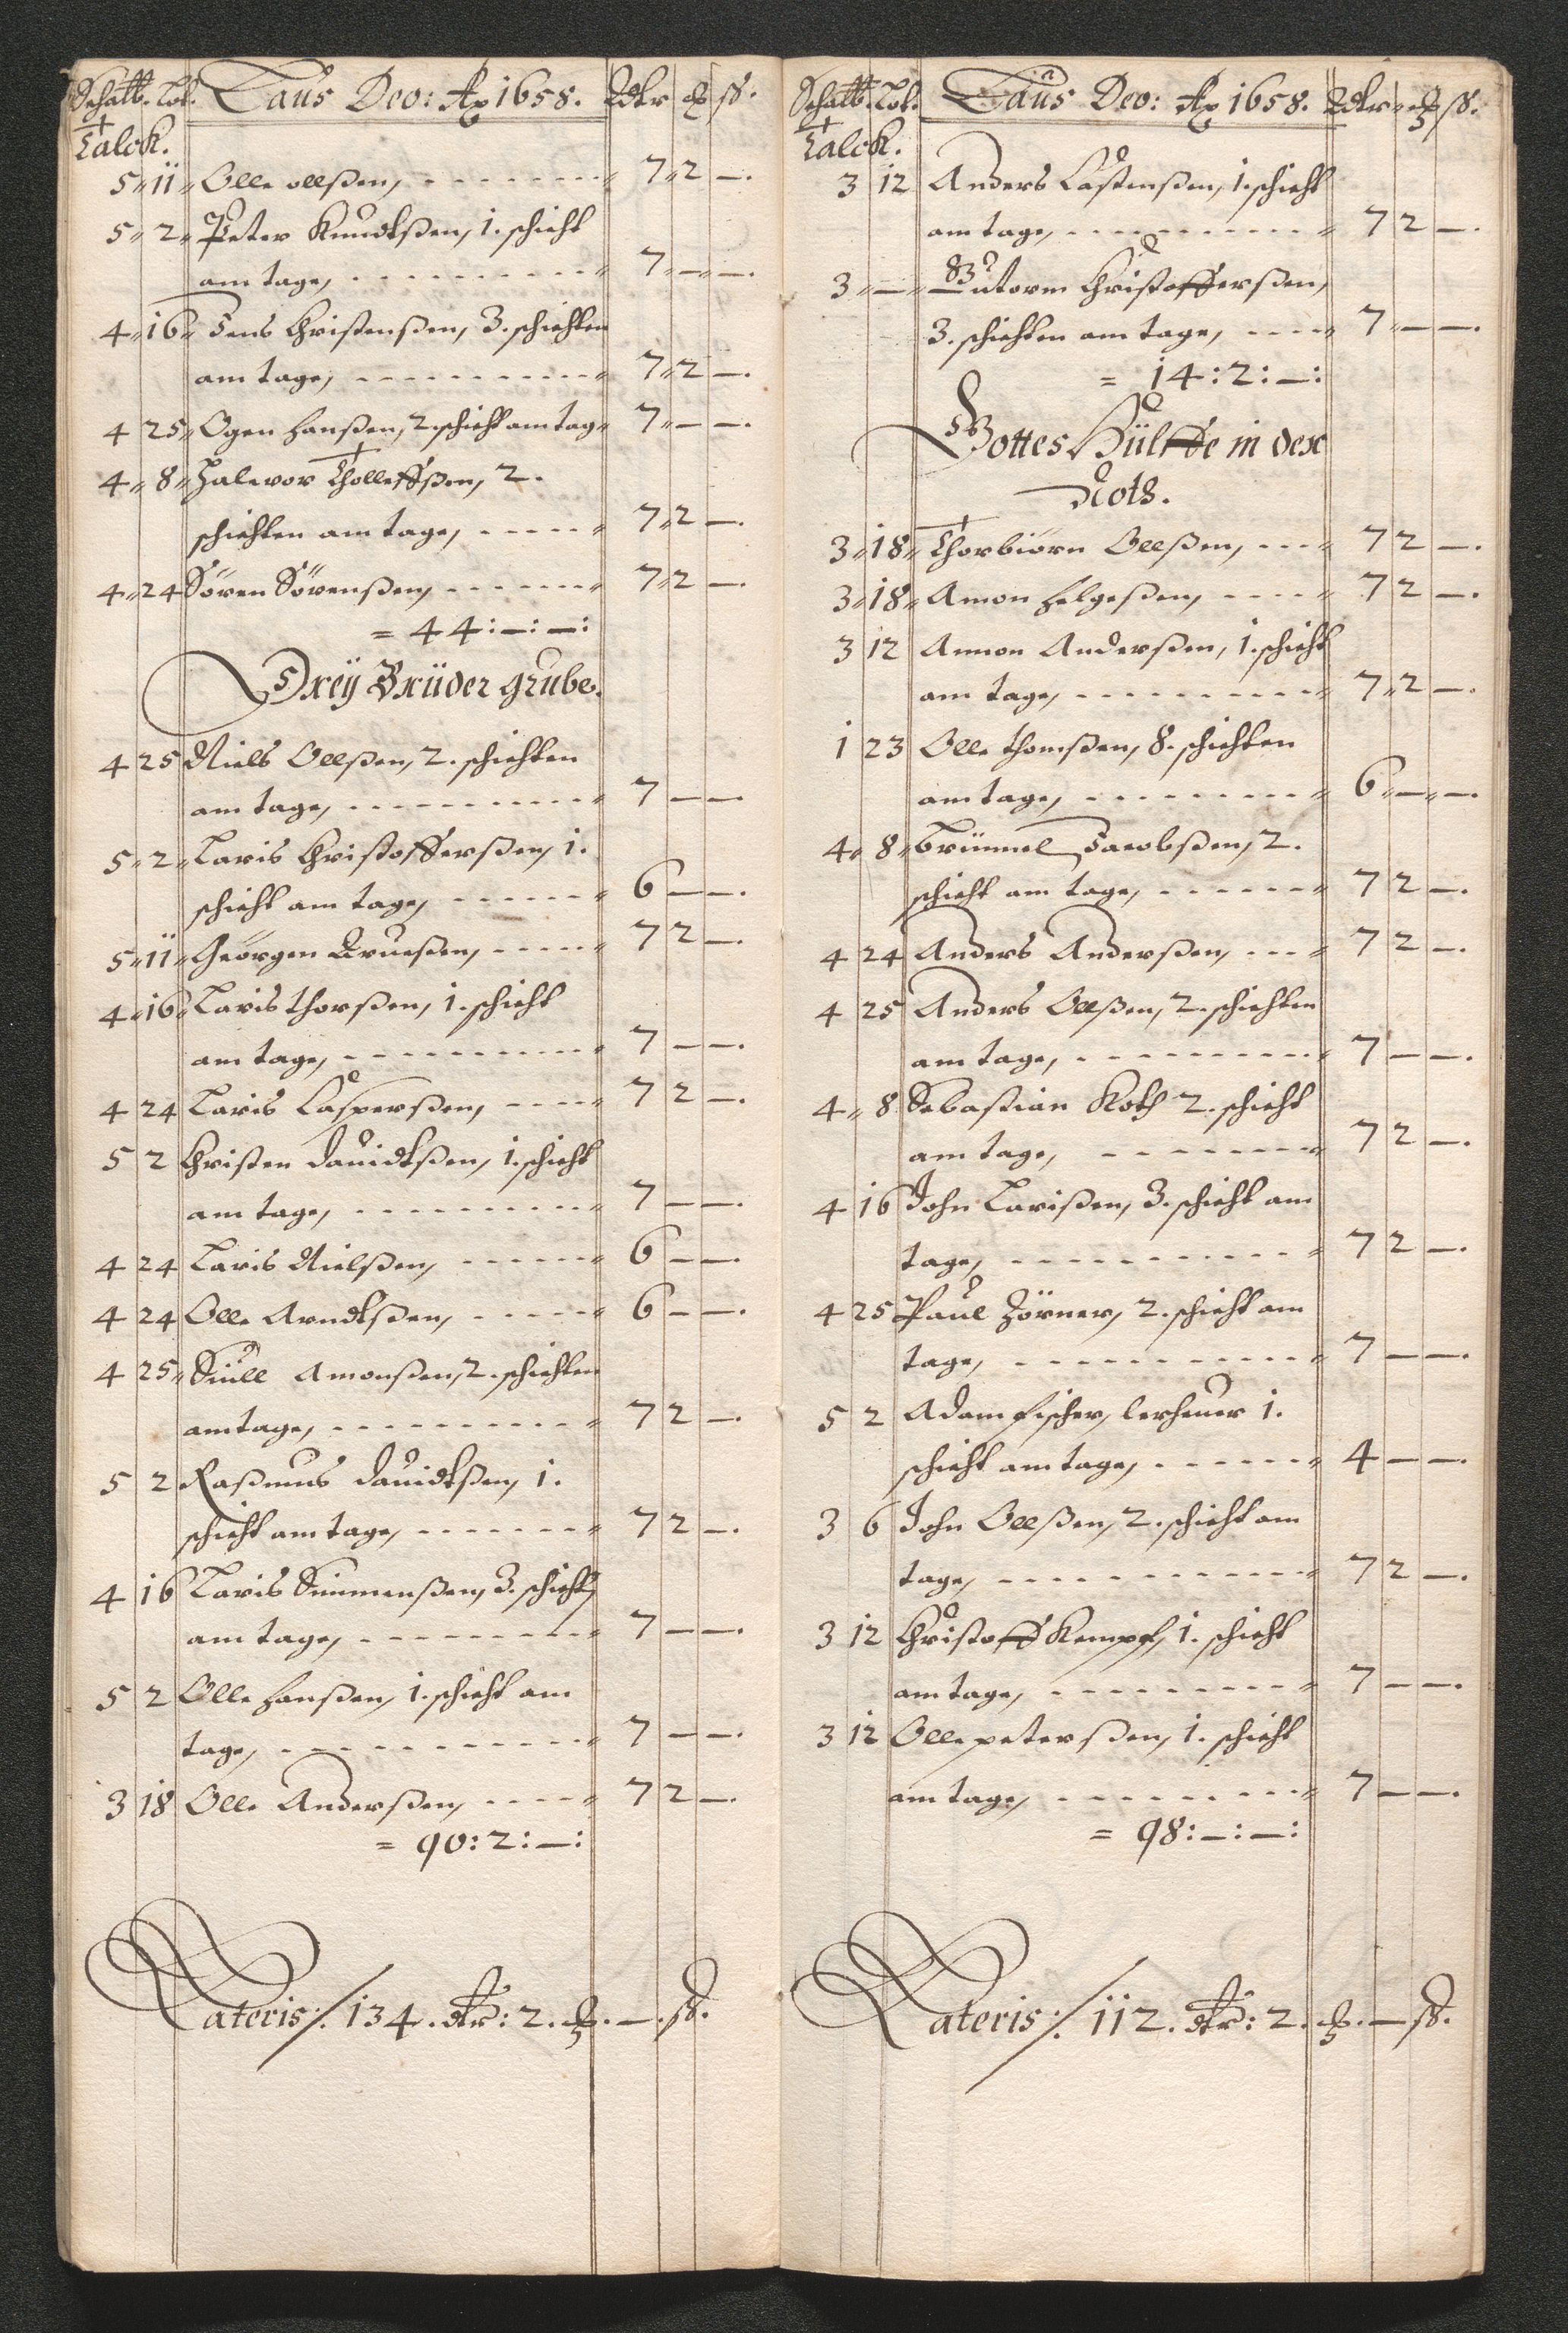 Schalb. Lod. Laus Deo: Ao 1658. Rdlr ß.
Talck.
5 11 Olle ollßen, 7 2 —.
5 2 Peter Knudtßen, 1. schicht
am tage, 7 — —.
4 16 Jens Christenßen, 3. schichten
am tage, 7 2 —.
4 25 Ogen Hanßen, 2. schicht am tag 7 — —.
4 8 Halvor Tholleffßen, 2.
schichten am tage, 7 2 —.
4 24 Sören Sörenßen, 7 2 —.
= 44:—:—:
Dreÿ Brüder grube.
4 25 Niels Ollßen, 2. schichten
am tage, 7 — —.
5 2 Laris Christofferßen, 1.
schicht am tage, 6 — —.
5 11 Geörgen Trueßen, 7 2 —.
4 16 Laris Thorßen, 1. schicht
am tage, 7 — —.
4 24 Laris Casperßen, 7 2 —.
5 2 Christen Dauidtßen, 1. schicht
am tage, 7 — —.
4 24 Laris Nielßen, 6 — —.
4 24 Olle Arndtßen, 6 — —.
4 25 Siüll Amonßen, 2. schichten
am tage, 7 2 —.
5 2 Raßmus Dauidtßen, 1.
schicht am tage, 7 2 —.
4 16 Laris Simmenßen, 3. schicht
am tage, 7 — —.
5 2 Olle Hanßen, 1. schicht am
tage, 7 — —.
3 18 Olle Anderßen, 7 2 —.
= 90:2:—:
Lateris:/: 134. dlr: 2. —. ß.
Schalb. Lod. Laus Deo: Ao 1658. Rdlr ß.
Talck.
3 12 Anders Castenßen, 1. schicht
am tage, 7 2 —.
3 — Gutorm Christofferßen,
3. schichten am tage, 7 — —.
= 14:2:—:
Gottes Hülffe in der
Noth.
3 18 Thorbiörn Ollßen, 7 2 —.
3 18 Amon Helgeßen, 7 2 —.
3 12 Ammon Anderßen, 1. schicht
am tage, 7 2 —.
1 23 Olle Thomßen, 8. schichten
am tage, 6 — —.
4 8 Brümmel Jacobßen, 2.
schicht am tage, 7 2 —.
4 24 Anders Anderßen, 7 2 —.
4 25 Anders Ollßen, 2. schichten
am tage, 7 — —.
4 8 Sebastian Koth 2. schicht
am tage, 7 2 —.
4 16 John Larißen, 3. schicht am
tage, 7 2 —.
4 25 Paul Hörner, 2. schicht am
tage, 7 — —.
5 2 Adam Fischer, lerheuer 1.
schicht am tage, 4 — —.
3 6 John Ollßen, 2. schicht am
tage, 7 2 —.
3 12 Christoff Kempf, 1. schicht
am tage, 7 — —.
3 12 Olle peterßen, 1. schicht
am tage, 7 — —.
= 98:—:—:
Lateris:/: 112. dlr: 2. — ß.